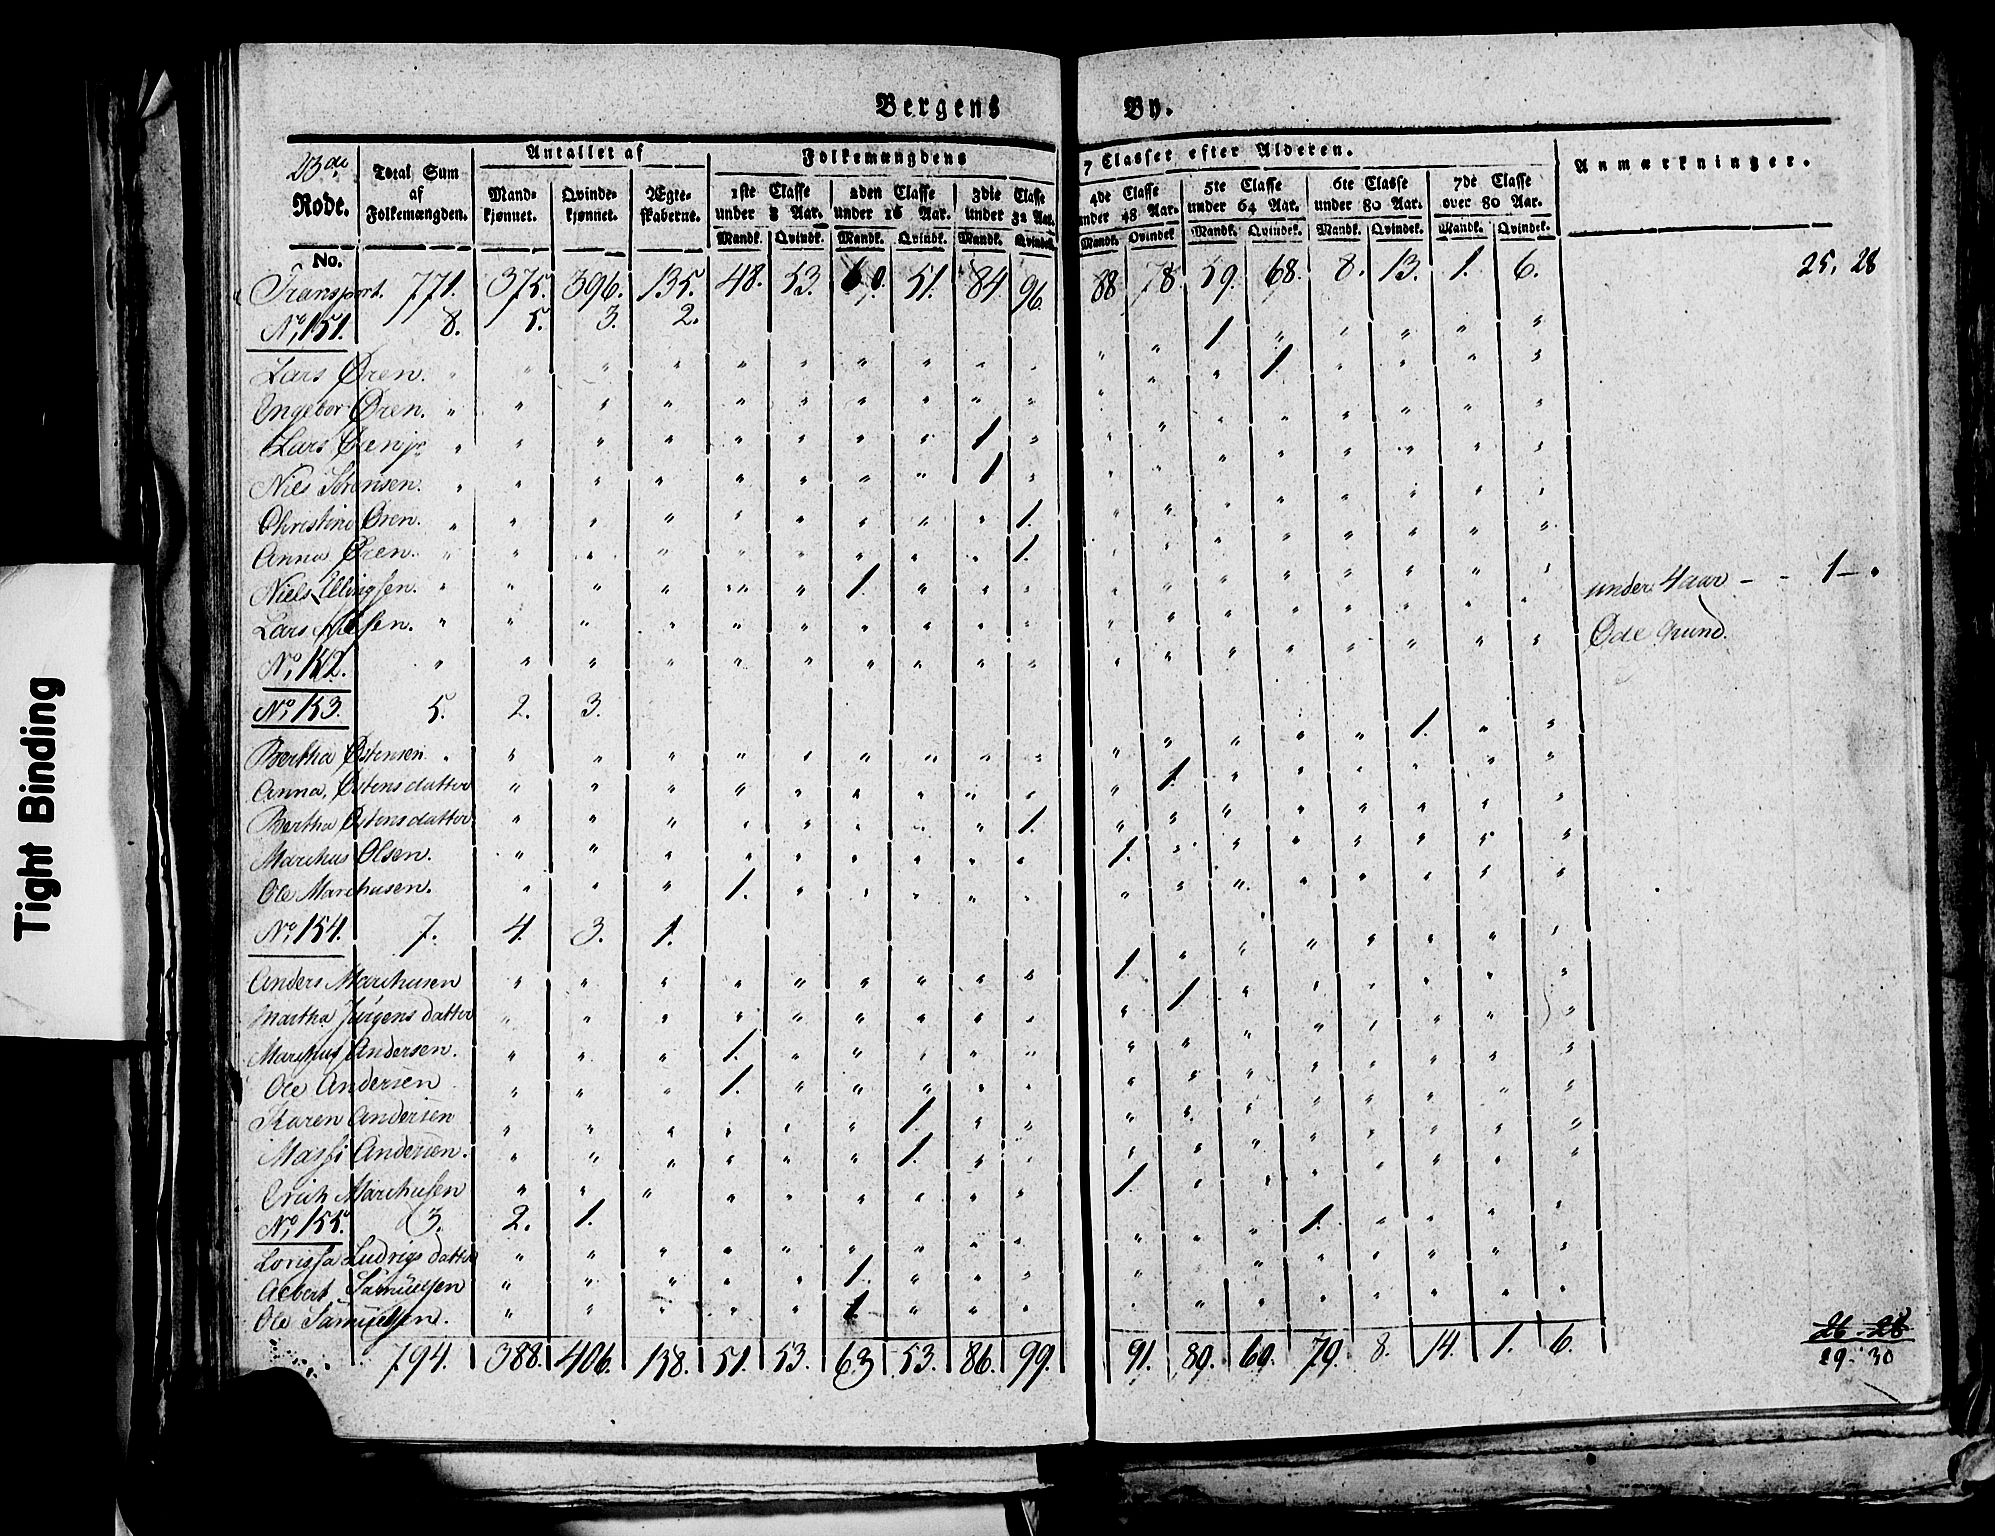 Tight Binding
Bergens By.
23de Rode.
No.
Total Sum af Folkemængden.
Antallet af
Mandkjønnet.
Qvindekjønnet.
Ægteskaberne.
Folkemængdens 7 Classer efter Alderen.
1ste Classe under 8 Aar.
2den Classe under 16 Aar.
3die Classe under 32 Aar.
4de Classe under 48 Aar.
5te Classe under 64 Aar.
6te Classe under 80 Aar.
7de Classe over 80 Aar.
Mandk. Qvindk. Mandk. Qvindk. Mandk. Qvindek. Mandk. Qvindek. Mandk. Qvindek. Mandk. Qvindek. Mandk. Qvindek.
Anmærkninger.
Transport. 771. 375. 396. 135. 48. 53. 60. 51. 84. 96. 88 78. 59. 68. 8. 13. 1. 6. 25. 28
No. 151. 8. 5. 3. 2.
Lars Øren. " " " " " " " " " " " " 1 " " " " "
Ingebor Øren. " " " " " " " " " " " " " 1. " " " "
Lars Øren jr " " " " " " " " 1 " " " " " " " " "
Niels Sørensen. " " " " " " " " 1 " " " " " " " " "
Christine Øren. " " " " " " " " " 1. " " " " " " " "
Anna Øren. " " " " " " " " " 1. " " " " " " " "
Niels Ellingsen. " " " " " " 1. " " " " " " " " " " " under 4 aar - - 1 - "
Lars " " " " " " " " " " " " " " " " " " Øde Grund.
No. 152. " " " " " " " " " " " " " " " " " "
No. 153. 5. 2. 3.
Bertha Østensen " " " " " " " " " " " " " " " 1. " "
Anna Østensdatter " " " " " " " " " " 1. " " " " " "
Bertha Østensdatter " " " " " " " " 1. " " " " " " " "
Marchus Olsen. " " " " " " " " " 1. " " " " " " "
Ole Marchusen. " " " 1. " " " " " " " " " " " " "
No. 154. 7. 4. 3. 1.
Anders Marchusen " " " " " " " " " 1 " " " " " " "
Martha Jürgensdatter " " " " " " " " " " 1. " " " " " "
Marchus Andersen. " " " 1. " " " " " " " " " " " " "
Ole Andersen " " " 1. " " " " " " " " " " " " "
Karen Andersen " " " " " " 1 " " " " " " " " " "
Andersen. " " " " " " 1. " " " " " " " " " "
Erich Marchusen " " " " " " " " " 1. " " " " " " "
No. 155. 3. 2. 1.
Ludvigsdatter " " " " " " " " " " " " 1. " " " "
Samuelsen " " " " " 1. " " " " " " " " " " "
Ole Samuelsen. " " " " " 1 " " " " " " " " " " "
26 - 28
794. 388. 406. 138. 51. 53. 63 53. 86. 99. 91. 80. 60. 70. 8. 14. 1. 6. 29. 30